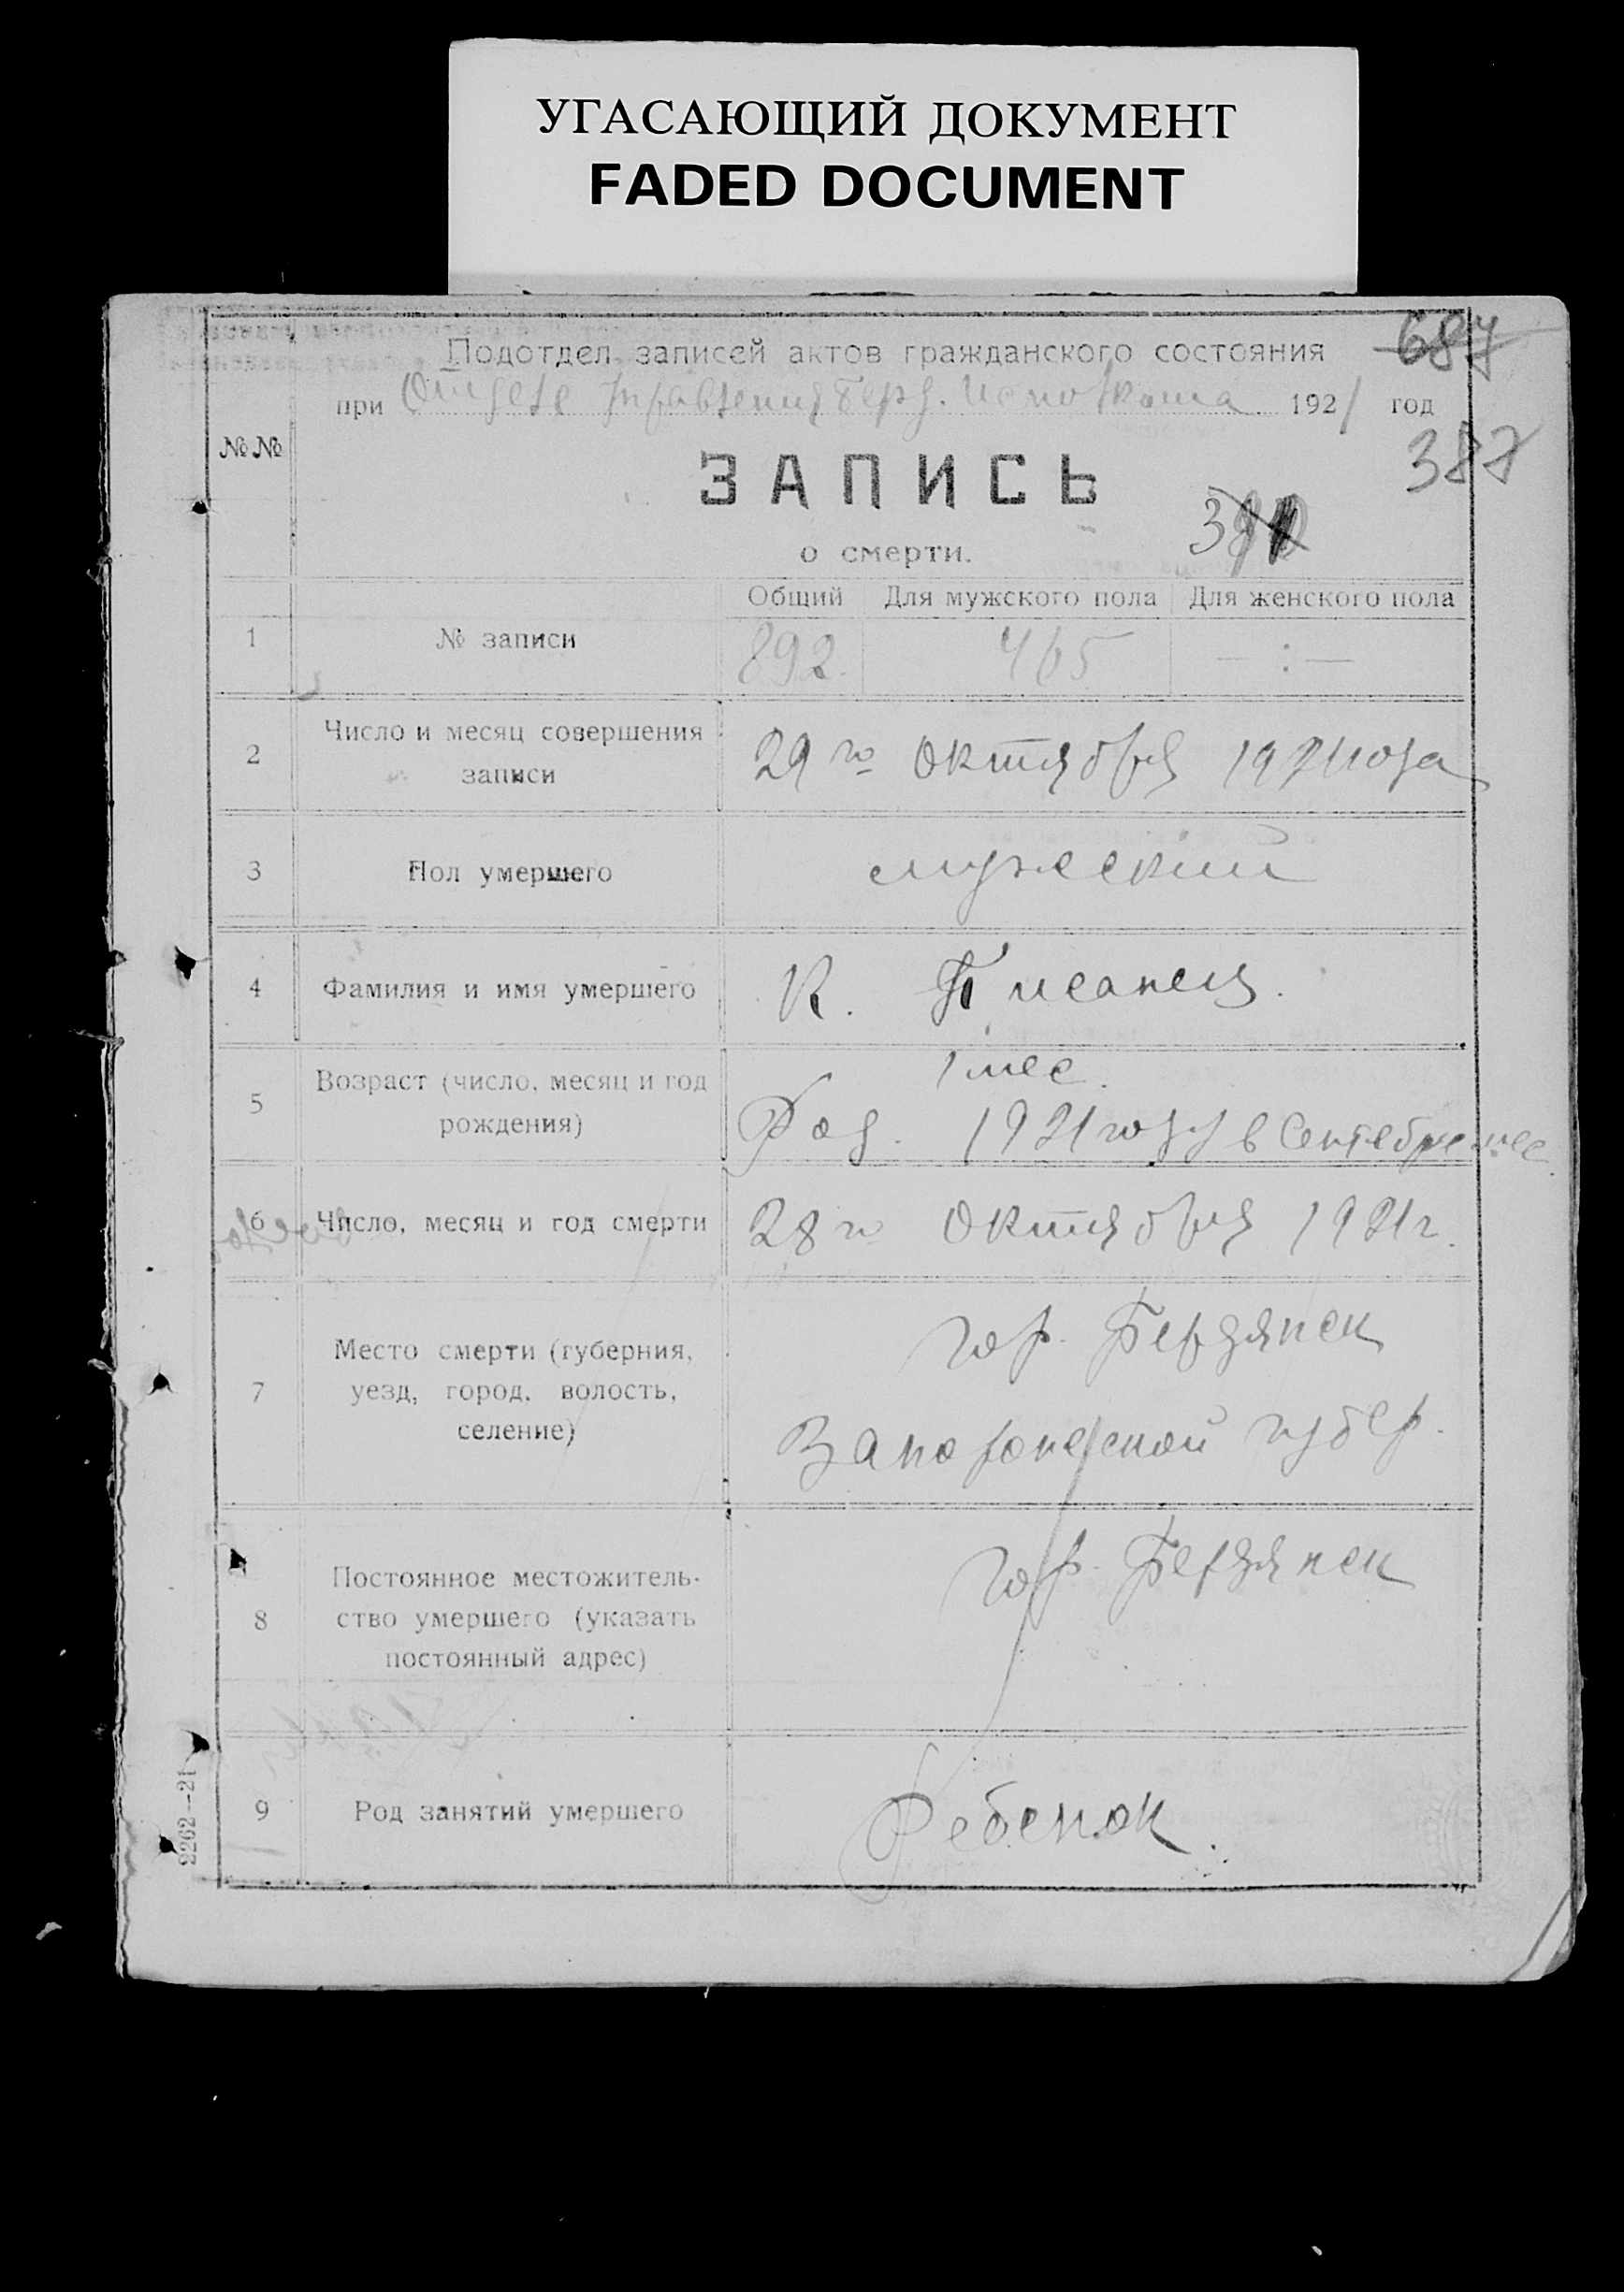 УГАСАЮЩИЙ ДОКУМЕНТ
FADED DOCUMENT
687
Подотдел записей актов гражданского состояния
при Отделе Управления Берд. Исполкома 1921 год
387
№№
ЗАПИСЬ
о смерти.
Общий Для мужского пола Для женского пола
1 № записи 892. 465 — : —
2 Число и месяц совершения
записи
29 го Октября 1921 года
3 Пол умершего мужеский
4 Фамилия и имя умершего К. Писанец.
5 Возраст (число, месяц и год
рождения)
1 мес.
Род. 1921 году в Сентябре мес.
6 Число, месяц и год смерти 28 го Октября 1921 г.
7 Место смерти (губерния,
уезд, город, волость,
селение)
гор. Бердянск
Запорожской губер.
8 Постоянное местожитель-
ство умершего (указать
постоянный адрес)
гор. Бердянск
9 Род занятий умершего Ребенок.
2262—21